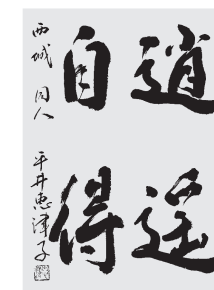 逍遥
自得
西城 同人
平井恵津子